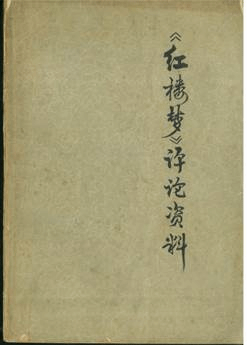 《红楼梦》评论资料